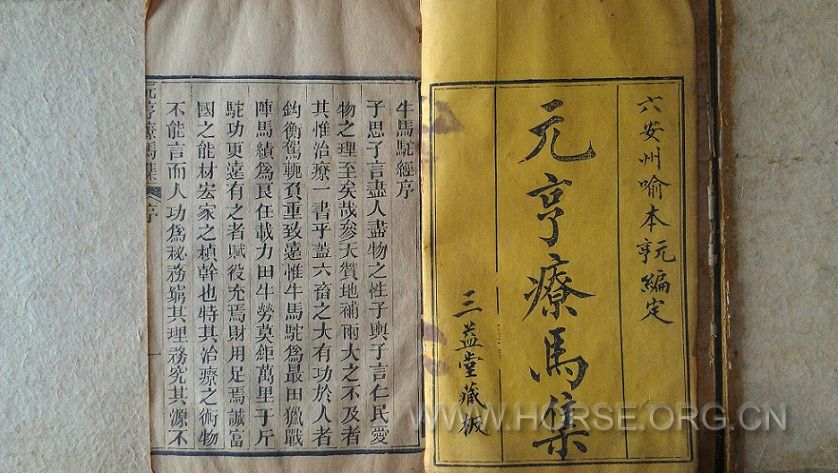 六安州喻本元亨編定
元亨療馬集
三益堂藏板
牛馬駝經序
子思子言盡人盡物之性子輿子言仁民愛
物之理至矣哉參天贊地補兩大之不及者
其惟治療一書乎蓋六畜之大有功於人者
鈞衡駕軛負重致遠惟牛馬駝爲最田獵戰
陣馬績爲良任載力田牛勞莫鉅萬里千斤
駝功更遠有之者賦役充焉財用足焉誠富
國之能材宏家之楨幹也特其治療之術物
不能言而人功爲秘務窮其理務究其源不
元亨療馬集 序 一
WWW.HORSE.ORG.CN